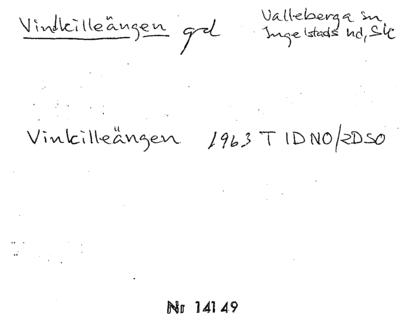 Vindkilleängen grd
Valleberga sn
Ingelstads hd, Sk
Vinkilleängen 1963 T 1DNO/2DSO
Nr 14149